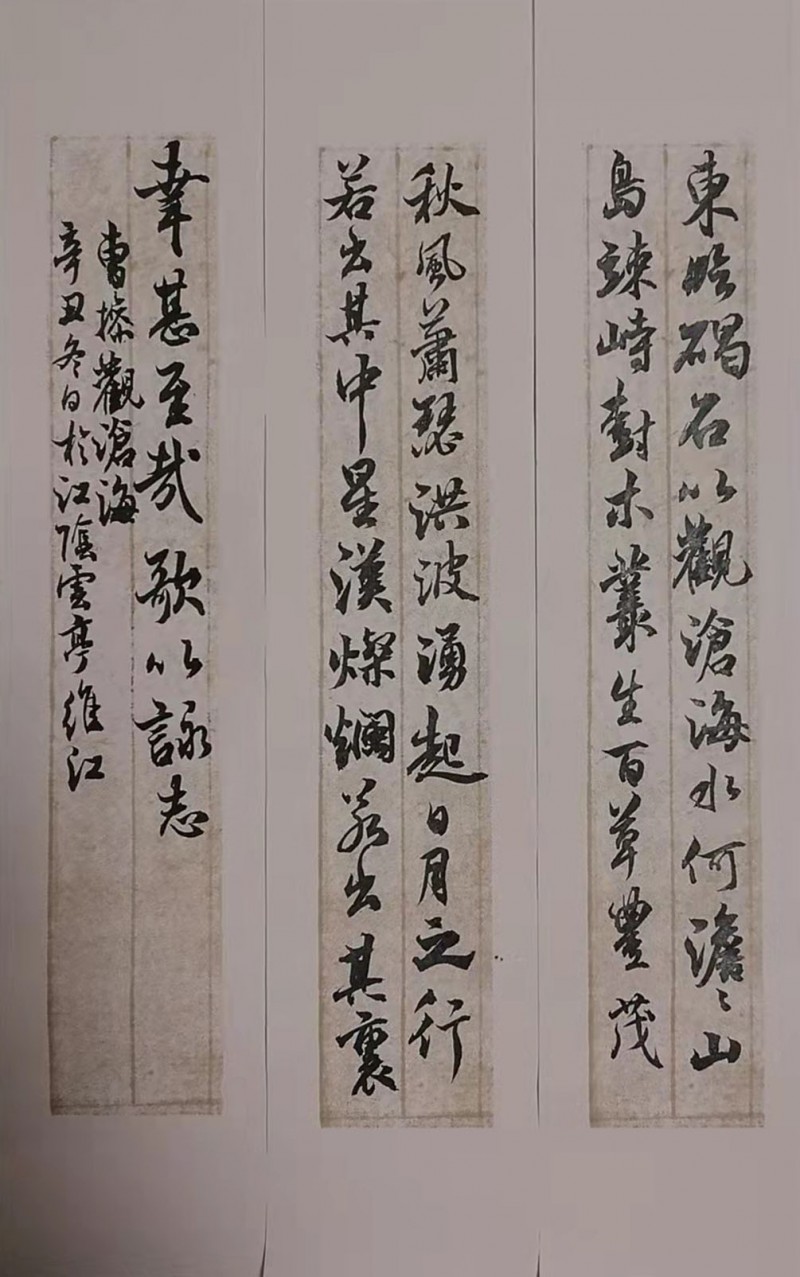 東臨碣石以觀滄海水何澹〻山
島竦峙樹木叢生百草豐茂
秋風蕭瑟洪波湧起日月之行
若出其中星漢燦爛若出其裏
幸甚至哉歌以詠志
曹操觀滄海
辛丑冬日於江陰雲亭維江